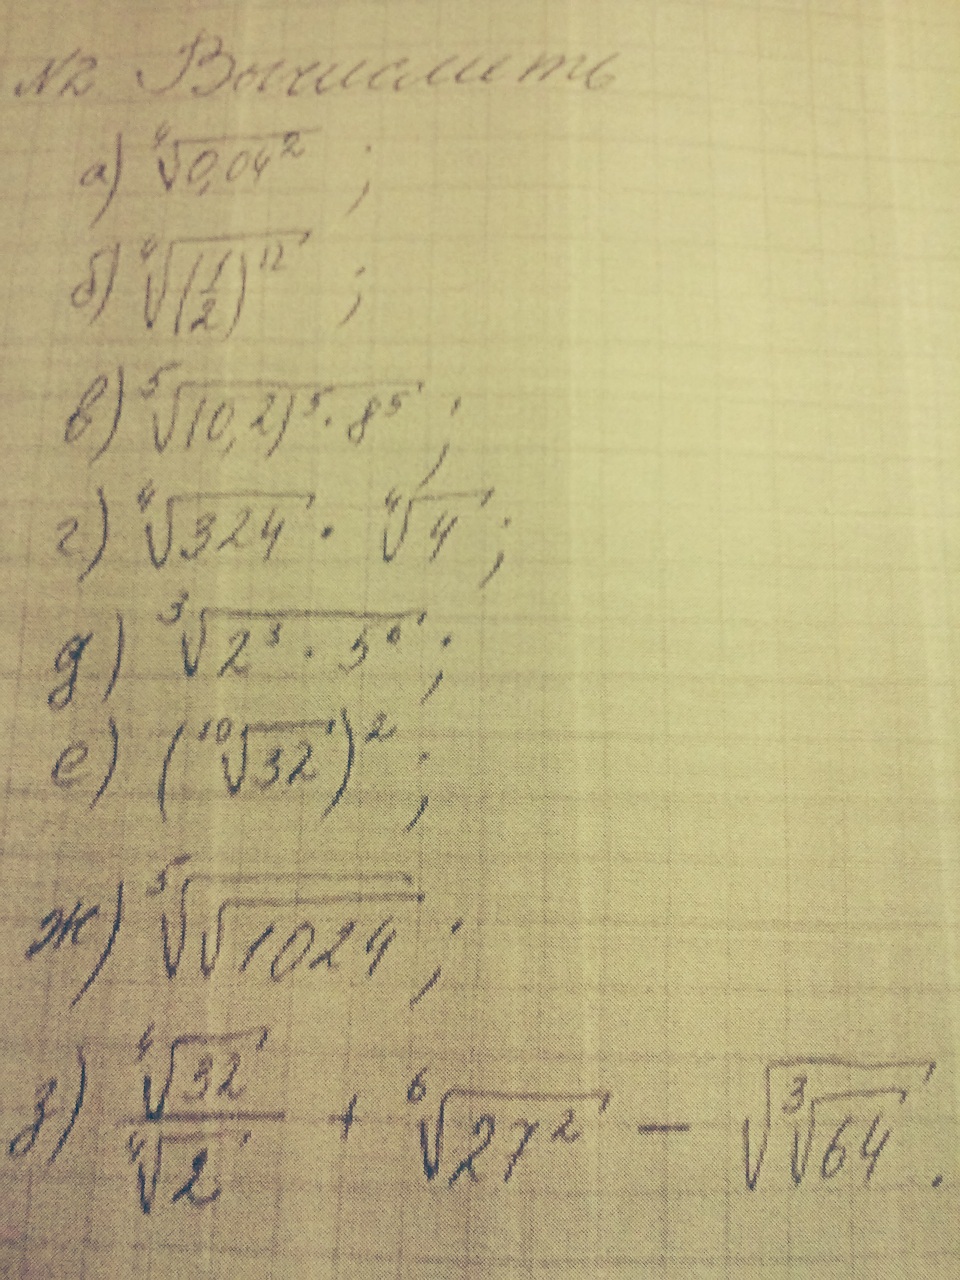 №2 Вычислить
а) ⁴√0,04² ;
б) ⁴√(1/2)¹² ;
в) ⁵√(10,2)⁵ · 8⁵ ;
г) ⁴√324 · ⁴√4 ;
д) ³√2³ · 5⁶ ;
е) (¹⁰√32)² ;
ж) ⁵√√1024 ;
з) ⁴√32 / ⁴√2 + ⁶√27² − √³√64 .